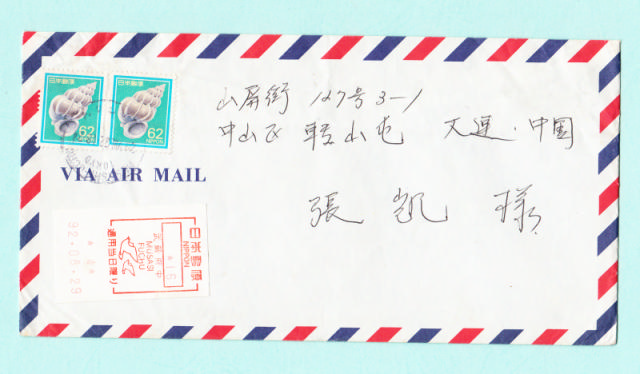 山屏街 127号3-1
中山区 鞍山屯 大連・中国
張 凱 様
日本郵便
62
NIPPON
日本郵便
62
NIPPON
VIA AIR MAIL
日本郵便
NIPPON
武蔵府中
MUSASI
FUCHU
適用当日限り
92.08.29